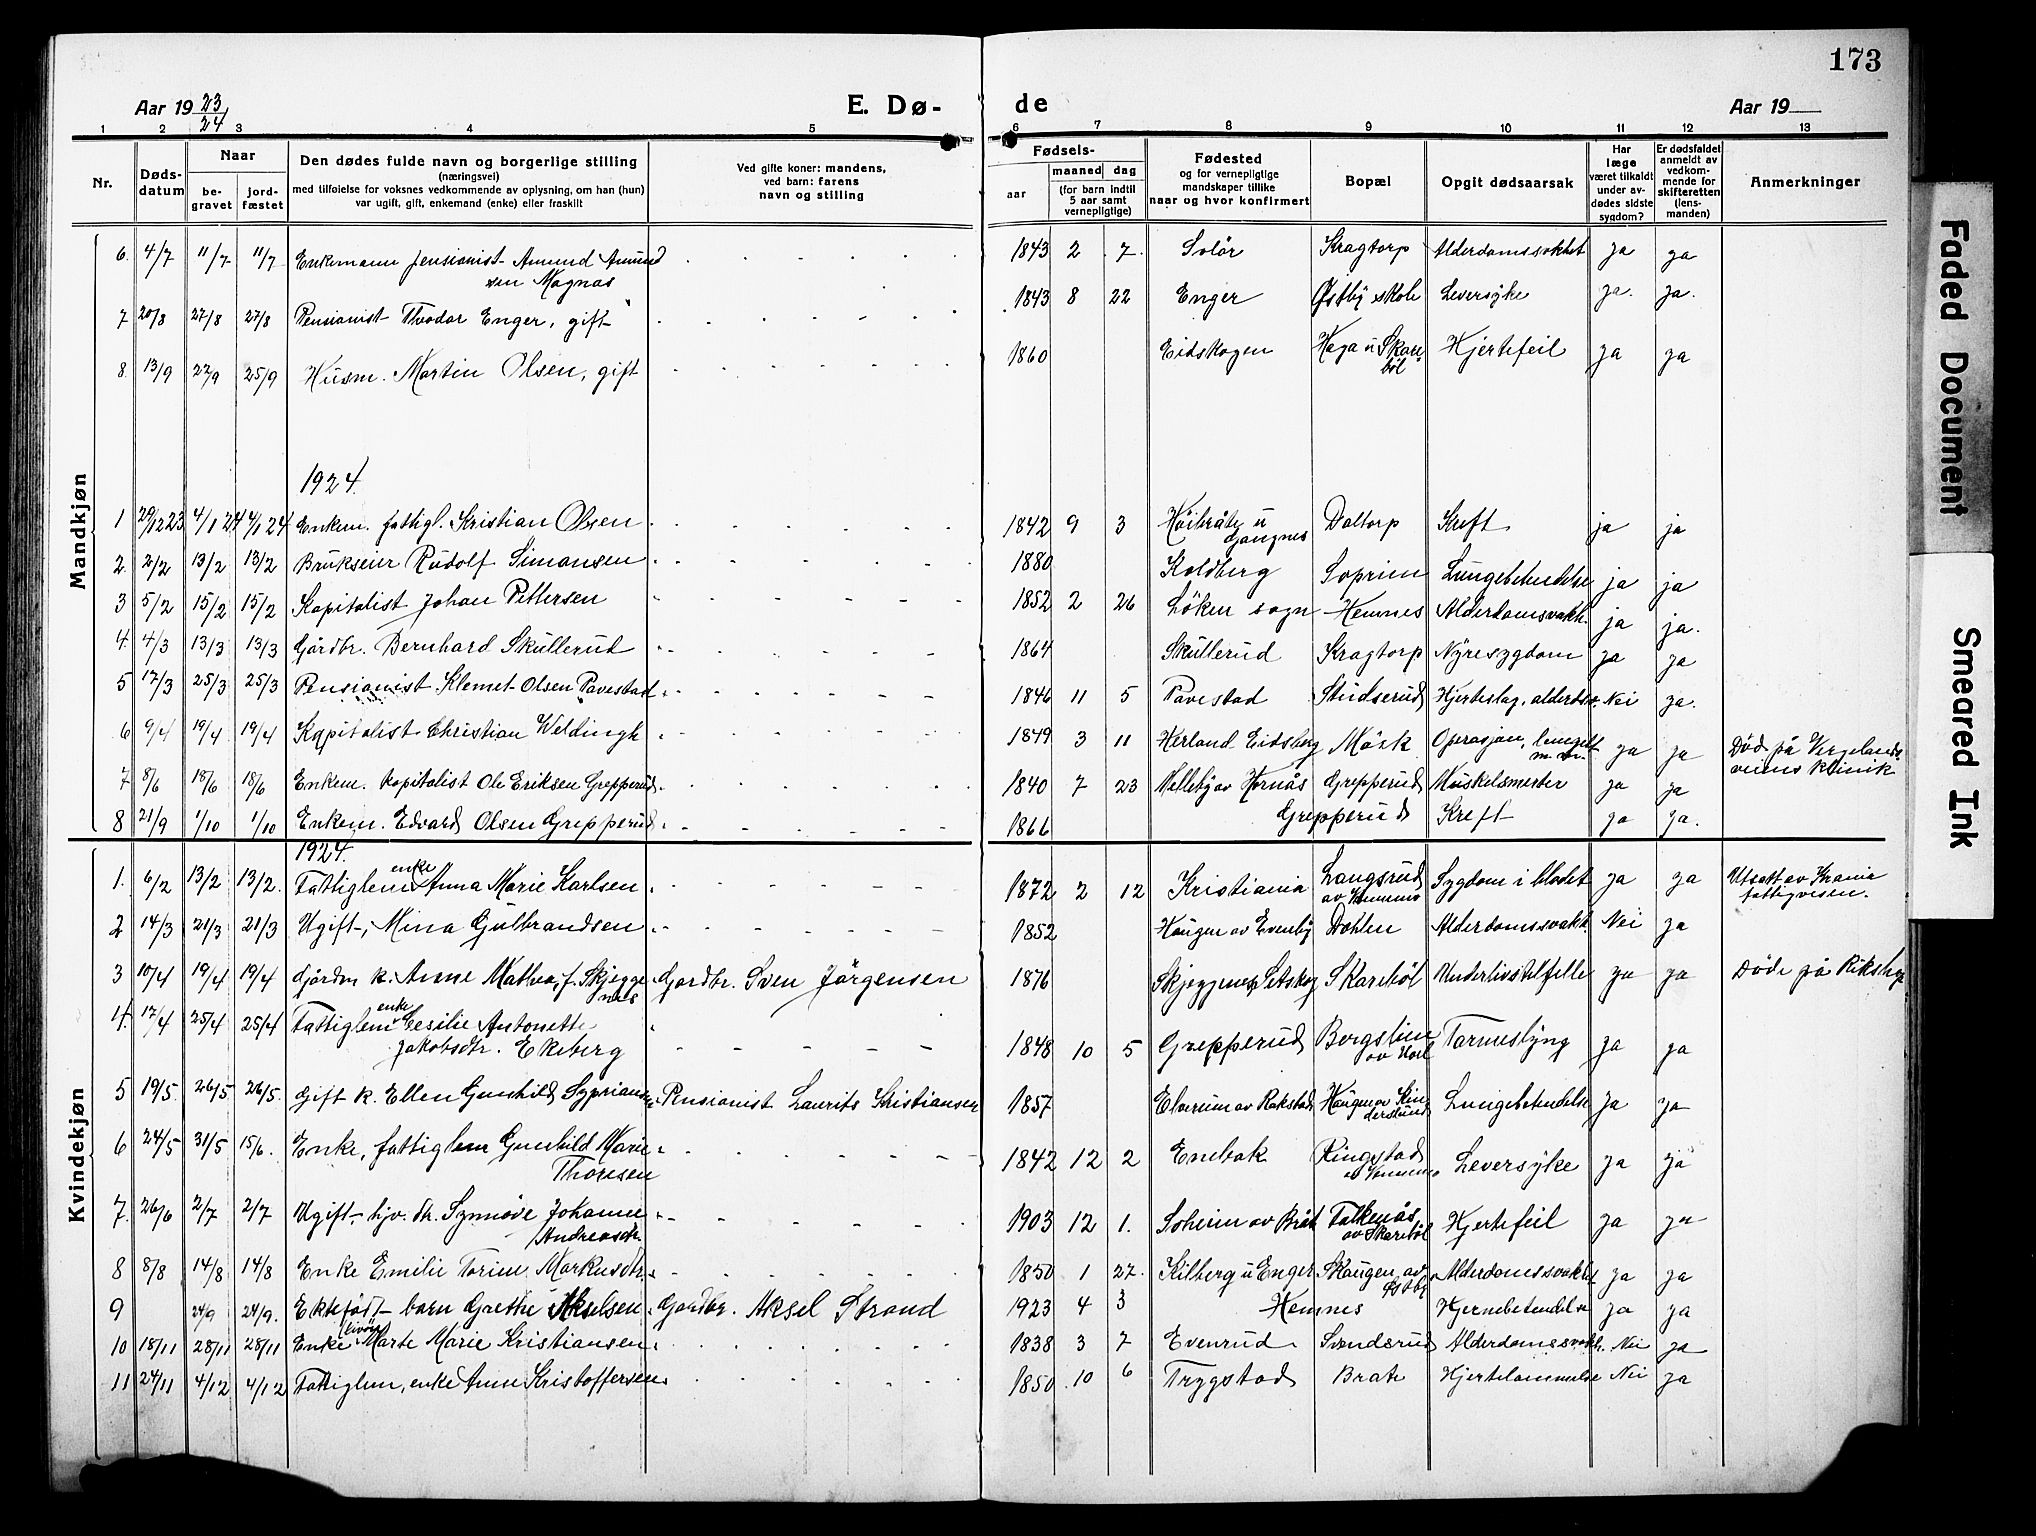 173
Aar 19 23/24
E. Dø-
de
Aar 19
1 2 3 4 5 6 7 8 9 10 11 12 13
Nr.
Døds-
datum
Naar
be-
gravet
jord-
fæstet
Den dødes fulde navn og borgerlige stilling
(næringsvei)
med tilføielse for voksnes vedkommende av oplysning, om han (hun)
var ugift, gift, enkemand (enke) eller fraskilt
Ved gifte koner: mandens,
ved barn: farens
navn og stilling
Fødsels-
aar
maaned dag
(for barn indtil
5 aar samt
vernepligtige)
Fødested
og for vernepligtige
mandskaper tillike
naar og hvor konfirmert
Bopæl
Opgit dødsaarsak
Har
læge
været tilkaldt
under av-
dødes sidste
sygdom?
Er dødsfaldet
anmeldt av
vedkom-
mende for
skifteretten
(lens-
manden)
Anmerkninger
Mandkjøn
6. 4/7 11/7 11/7 Enkemann pensionist Amund Amund
sen Magnas 1843 2 7. Solör Kragtorp Alderdomssvakhet ja ja
7 20/8 27/8 27/8 Pensionist Theodor Enger, gift 1843 8 22 Enger Østby skole Leversyke ja. ja.
8. 13/9 27/9 25/9 Husm. Martin Olsen, gift 1860 Eidskogen Haga u Skare
böl Hjertefeil ja ja
1924.
1 29/12 23 4/1 24 4/1 24 Enkem. fattigl. Kristian Olsen 1842 9 3 Haibråte u
Gangnes Daltorp Kreft ja ja
2. 2/2 13/2 13/2 Brukseier Rudolf Simonsen 1880 Koldberg Soprim Lungebetendelse ja ja
3 5/2 15/2 15/2 Kapitalist Johan Pettersen 1852 2 26 Löken sogn Hemnes Alderdomsvakh. ja ja.
4. 4/3 13/3 13/3 Gårdbr. Bernhard Skullerud 1864 Skullerud Kragtorp Nyresygdom ja ja
5 17/3 25/3 25/3 Pensionist Klemet Olsen Pavestad 1846 11 5 Pavestad Studserud Hjerteslag, alderdsv. Nei ja.
6 9/4 19/4 19/4 Kapitalist Christian Weldingh 1849 3 11 Herland Eidsberg Mösk Operasjon, lungebt
m. m. ja ja Död på Vergelands-
veiens klinik
7 8/6 18/6 18/6 Enkem. kapitalist Ole Eriksen Grepperud 1840 7 23 Mellebÿ av Hornås Grepperud Muskelsmerter ja ja
8 21/9 1/10 1/10 Enkem. Edvard Olsen Grepperud 1866 Grepperud Kreft ja ja.
Kvindekjøn
1924.
1. 6/2 13/2 13/2. Fattiglem enke Anna Marie Karlsen 1872 2 12 Kristiania Langsrud
av Hemnes Sygdom i blodet ja ja Utsatt av Krania
fattigvesen.
2 14/3 21/3 21/3 Ugift, Mina Gulbrandsen 1852 Haugen av Evenby Dahlen Alderdomssvakh. Nei ja
3 10/4 19/4 19/4 Gårdm k. Anne Mathea, f. Skjegge
nes Gardbr. Sven Jörgensen 1876 Skjeggenes Setskog Skareböl Underlivstilfelle ja ja Döde på Riksho
4. 17/4 25/4 25/4 Fattiglem enke Cesilie Antonette
Jakobsdtr. Ekeberg 1848 10 5 Grepperud Borgslien
av Hoel Tarmslyng ja ja
5 19/5 26/5 26/5. Gift k. Ellen Gunhild Syprianse Pensionist Laurits Kristiansen 1857 Elverum av Rakstad Haugen av Kin
derslund Lungebetendelse ja ja
6 24/5 31/5 15/6. Enke, fattiglem Gunhild Marie
Thoresen 1842 12 2 Enebak Ringstad
av Hemnes Leversÿke ja ja
7. 26/6 2/7 2/7 Ugift, hjv. dtr. Synnöve Johanne
Andreasdtr. 1903 12 1. Solheim av Bråt Falkenås
av Skareböl Hjertefeil ja ja
8 8/8 14/8 14/8 Enke Emilie Torine Markusdtr. 1850 1 27. Kilberg u Enger Skaugen av
Østby Alderdomssvakht ja ja
9 24/9 24/9. Ektefödt barn Grethe Akselsen Gardbr. Aksel Strand 1923 4 3 Hemnes Hjernebetendelse ja ja
10 18/11 28/11 28/11 Enke Marte Marie Kristiansen 1838 3 7 Evenrud Svendsrud Alderdomssvakh. Nei ja
11 24/11 4/12 4/12 Fattiglem, enke Anne Kristoffersen 1850 10 6 Trygstad Brate Hjertelammelse Nei ja
Faded Document
Smeared Ink